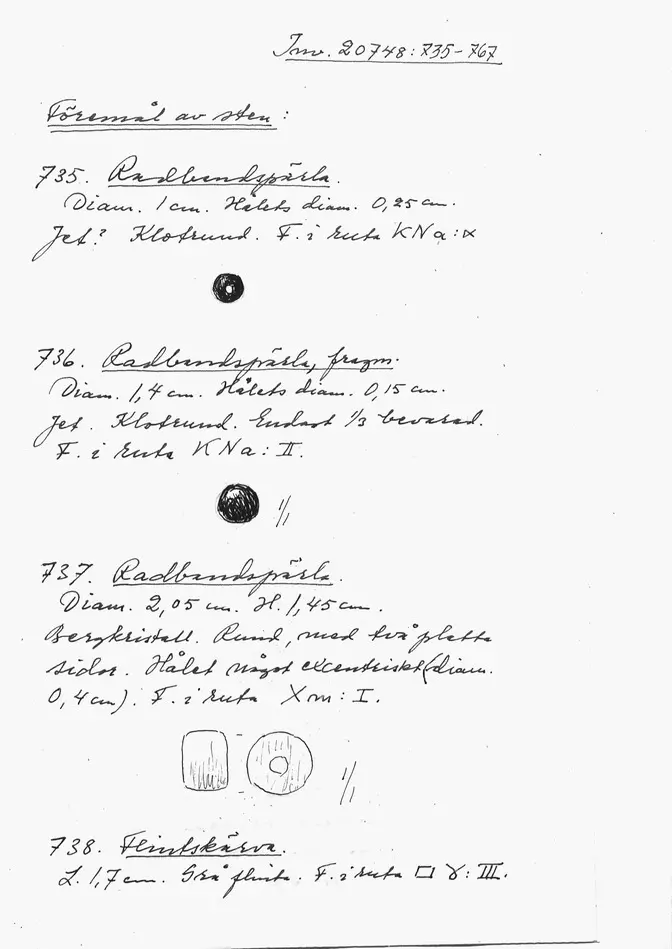 Inv. 20748:735-767
Föremål av sten:
735. Radbandspärla.
Diam. 1 cm. Hålets diam. 0,25 cm.
Jet? Klotrund. F. i ruta KNa:
736. Radbandspärla, fragm.
Diam. 1,4 cm. Hålets diam. 0,15 cm.
Jet. Klotrund. Endast 1/3 bevarad.
F. i ruta KNa: II.
1/1
737. Radbandspärla.
Diam. 2,05 cm. H. 1,45 cm.
Bergkristall. Rund, med två platta
sidor. Hålet något excentriskt (diam.
0,4 cm). F. i ruta Xm: I.
1/1
738. Flintskärva.
L. 1,7 cm. Grå flinta. F. i ruta □ γ: III.